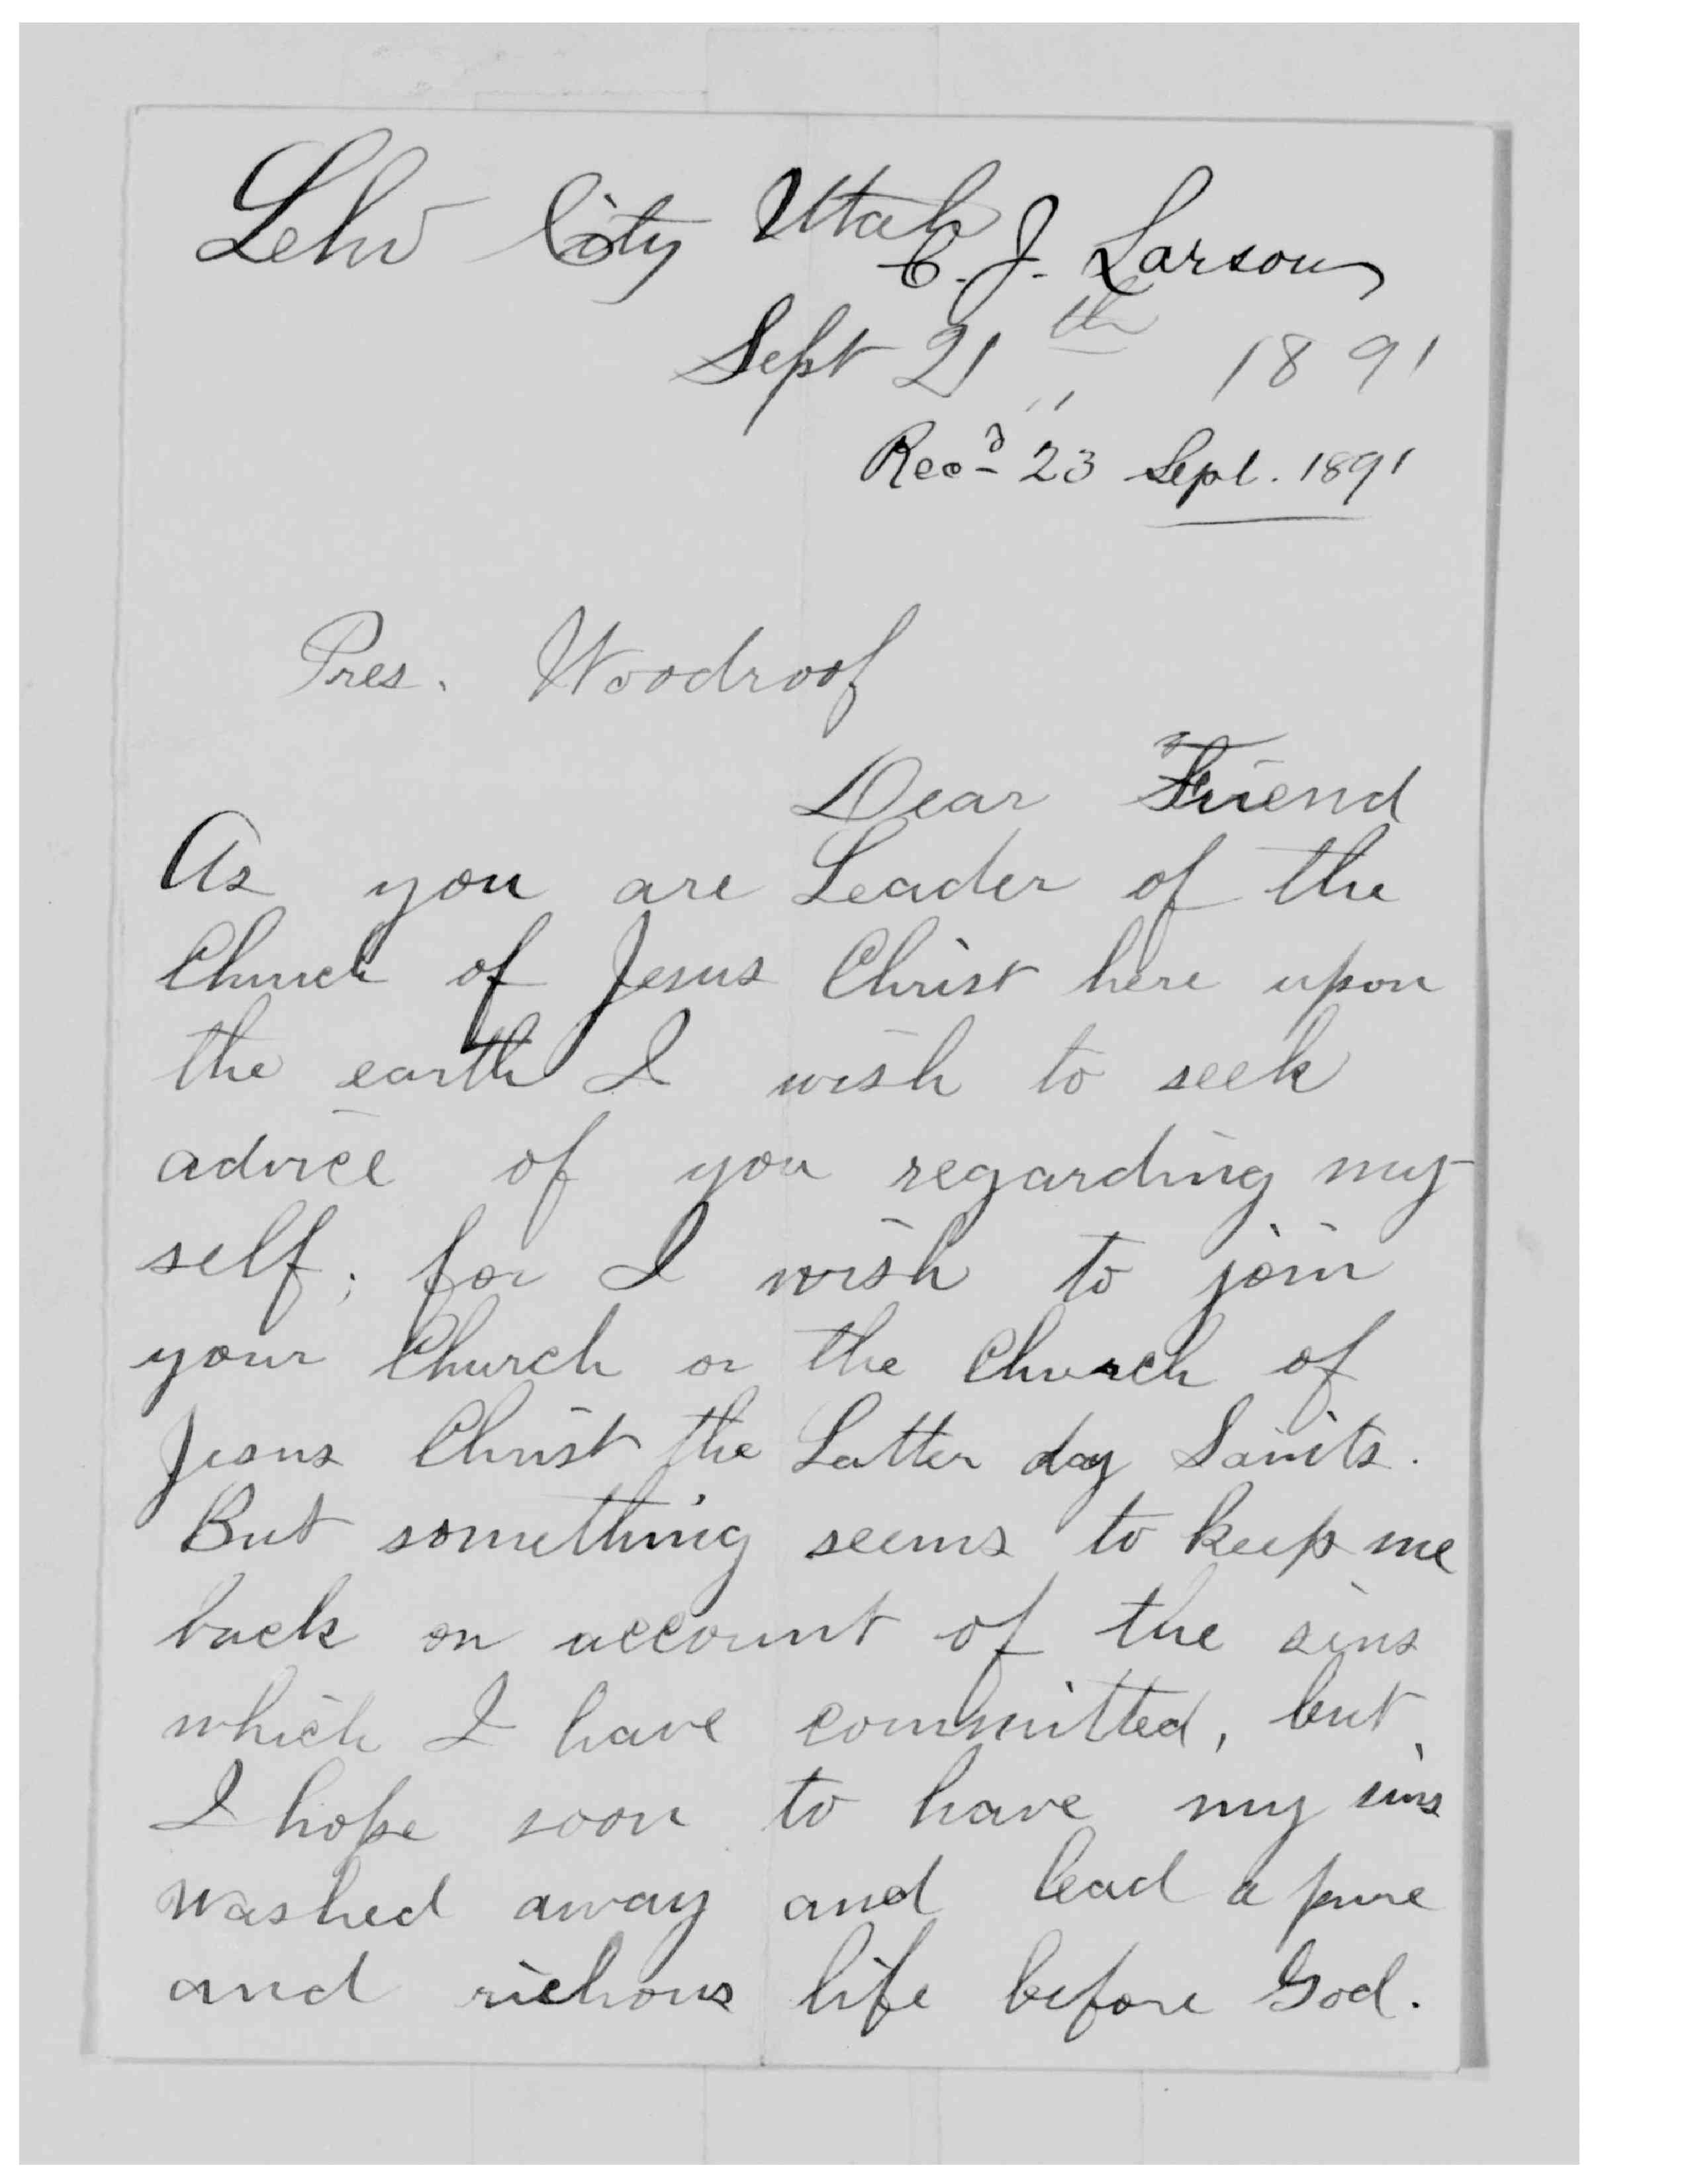 Lehi City Utah
C. J. Larson
Sept 21th 1891
Recd 23 Sept. 1891
Pres. Woodroof
Dear Friend
As you are Leader of the
Church of Jesus Christ here upon
the earth I wish to seek
advice of you regarding my-
self; for I wish to join
your Church or the Church of
Jesus Christ the Latter day Saints.
But something seems to keep me
back on account of the sins
which I have committed, but
I hope soon to have my sins
washed away and lead a pure
and richous life before God.